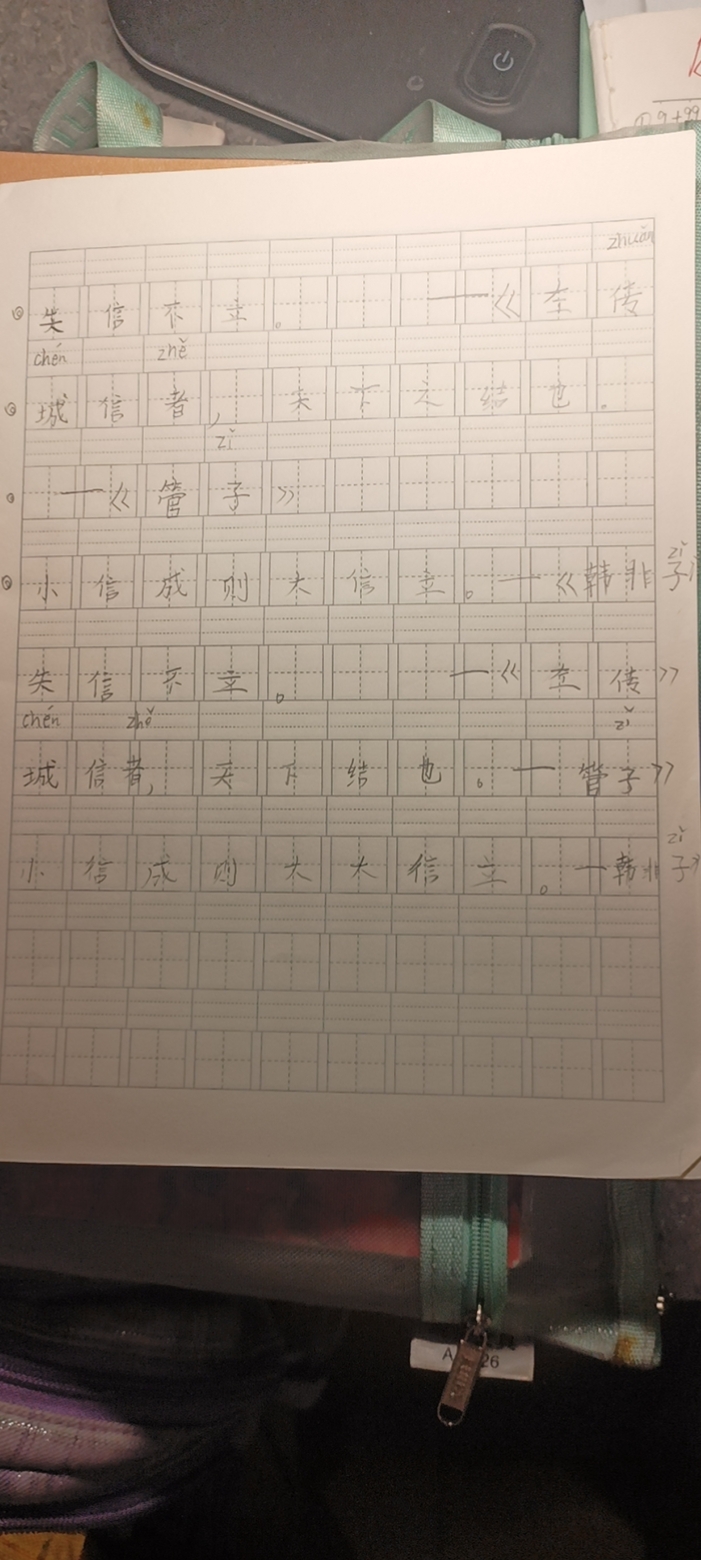 zhuàn
失信不立。 ——《左传
chén zhě
城信者,天下之结也。
zǐ
——《管子》
zǐ
小信成则大信立。——《韩非子》
失信不立。 ——《左传》
chén zhě zǐ
城信者,天下结也。——管子》
小信成则大大信立。——韩非子》
zǐ